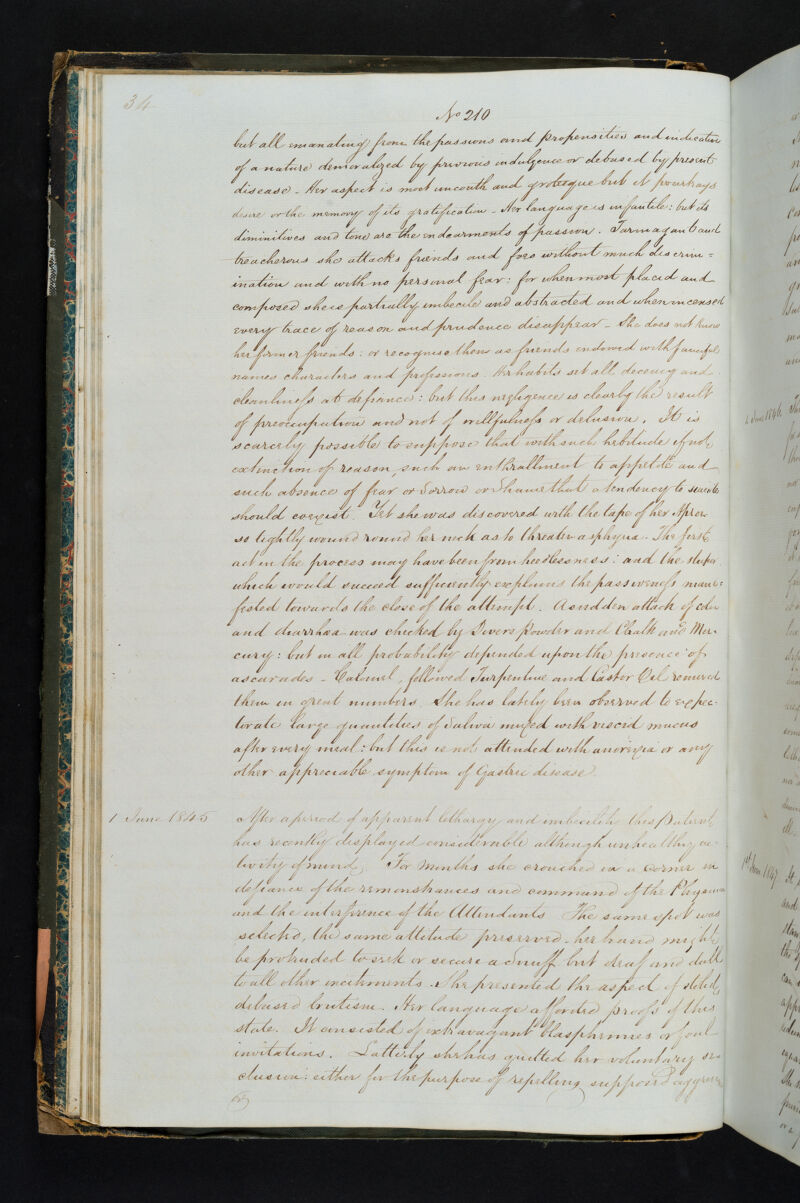 34
No 210
but all emanating from the passions and propensities and indicative
of a nature demoralized by previous indulgence or debased by present
disease - Her aspect is most uncouth and grotesque but it pourtrays
desire or the memory of its gratification - Her language is infantile: but its
diminitives and tone are the endearments of passion. Tarmagant and
treacherous she attacks friends and foes without much discrim=
ination and with no personal fear: for when most placid and
composed she is partially imbecile and abstracted and when incensed
every trace of reason and prudence disappear - She does not know
her former friends: or recognise them as friends endowed with fanciful
names characters and professions. Her habits set all decency and
cleanliness at defiance: but this negligence is clearly the result
of preoccupation and not of willfulness or delusion. It is
scarcely possible to suppose that with such hebitude if not
extinction of reason, such an enthrallment to appetite and
such absence of fear or Sorrow or Shame that a tendency to suicide
should coexist. Yet she was discovered with the tape of her Apron
so tightly wound round her neck as to threaten asphyxia. The first
act in the process may have been from heedlessness: and the stupor
which would succeed sufficiently explains the passiveness mani=
fested towards the close of the attempt. A sudden attack of colic
and diarrhœa was checked by Dovers Powder and Chalk and Mer-
cury: but in all probability depended upon the presence of
ascarades - Calomel, followed Turpentine and Castor Oil removed
them in great numbers. She has lately been observed to expec-
torate large quantities of Saliva mixed with viscid mucus
after every meal: but this is not attended with anorexia or any
other appreciable symptom of Gastric disease.
1 June 1845 After a period of apparent lethargy and imbecility this Patient
has recently displayed considerable although unhealthy ac-
tivity of mind. For months she crouched in a corner in
defiance of the remonstrances and command of the Physician
and the interference of the Attendants The same spot was
selected, the same attitude preserved - her hand might
be protruded to seek or secure a snuff but deaf and dull
to all other incitements. She presented the aspect of stolid,
debased brutism. Her language afforded proofs of this
state. It consisted of extravagant blasphemies or foul
invitations. Latterly she has quitted her voluntary se-
clusion: either for the purpose of repelling supposed